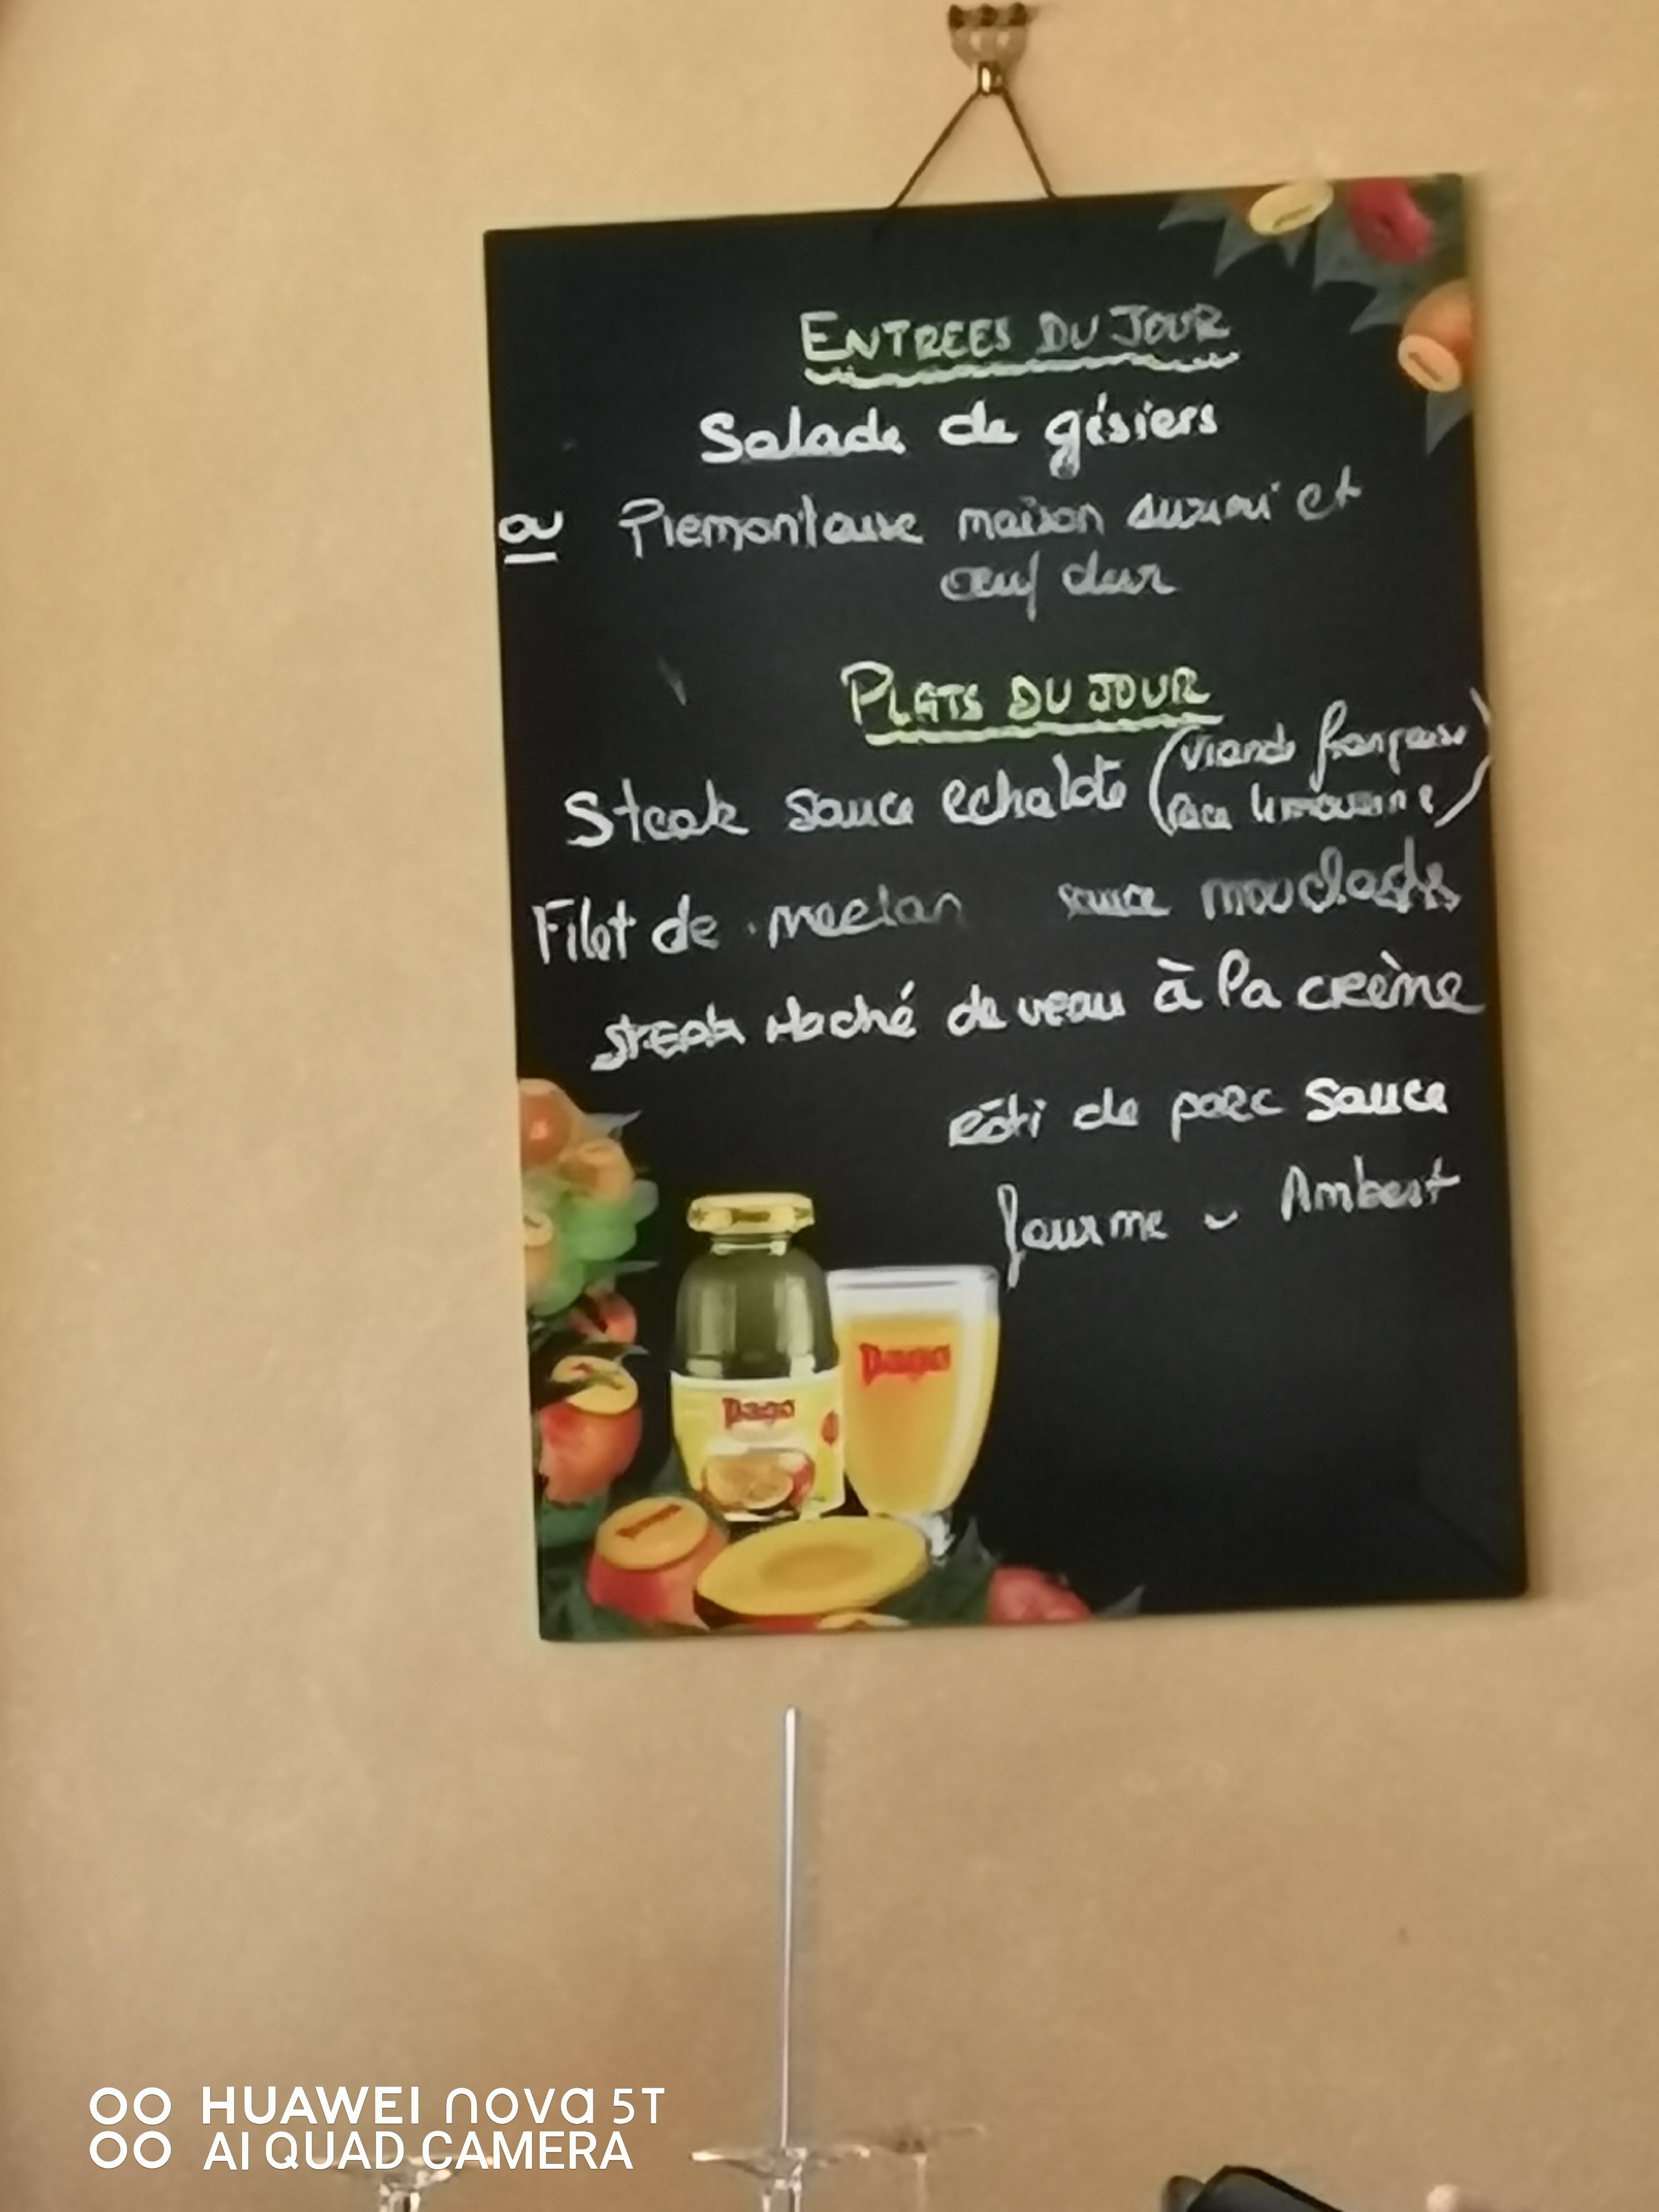 ENTREES DU JOUR
Salade de gésiers
ou Piemontaise maison surimi et
œuf dur
PLATS DU JOUR
Steak sauce echalote (viande française
race limousine)
Filet de merlan sauce
steak Haché de veau à la crème
rôti de porc sauce
fourme Ambert
Pago
Pago
HUAWEI nova 5T
AI QUAD CAMERA